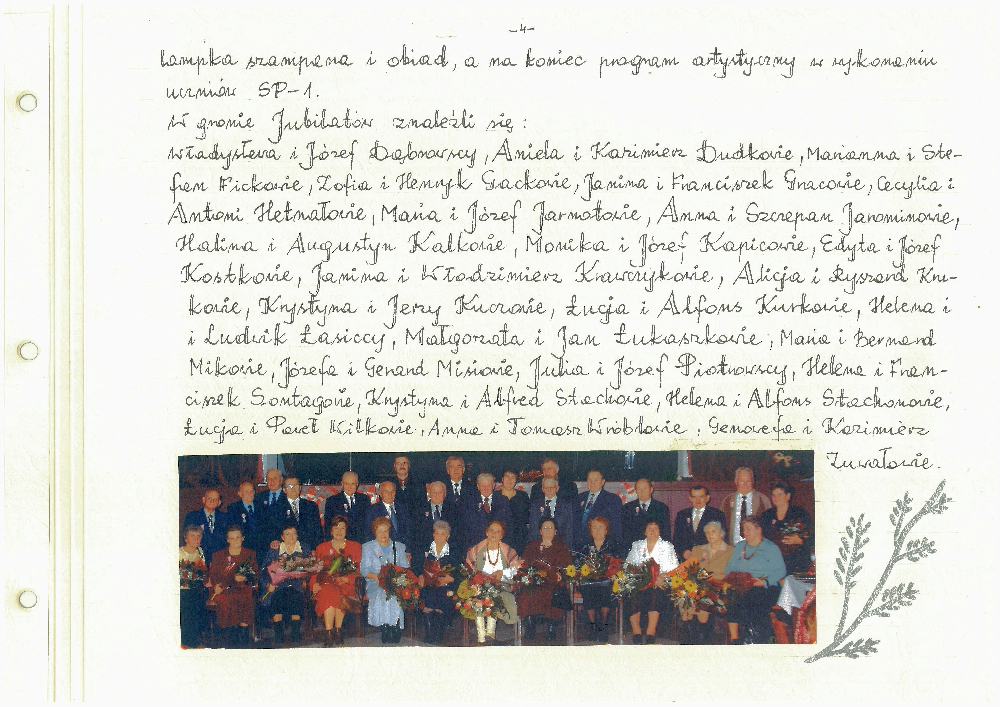 -4-
lampka szampana i obiad, a na koniec program artystyczny w wykonaniu
uczniów SP-1.
W gronie Jubilatów znaleźli się:
Władysława i Józef Dąbrowscy, Aniela i Kazimierz Dudkowie, Marianna i Ste-
fan Fickowie, Zofia i Henryk Gackowie, Janina i Franciszek Gracowie, Cecylia i
Antoni Hetnałowie, Maria i Józef Jarnotowie, Anna i Szczepan Jarominowie,
Halina i Augustyn Kalkowie, Monika i Józef Kapicowie, Edyta i Józef
Kostkowie, Janina i Włodzimierz Krawczykowie, Alicja i Ryszard Kru-
kowie, Krystyna i Jerzy Kuczowie, Łucja i Alfons Kurkowie, Helena i
i Ludwik Łasiccy, Małgorzata i Jan Łukaszkowie, Maria i Bernard
Mikowie, Józefa i Gerard Misiowie, Julia i Józef Piotrowscy, Helena i Fran-
ciszek Sontagowie, Krystyna i Alfred Stachowie, Helena i Alfons Stachonowie,
Łucja i Paweł Wilkowie, Anna i Tomasz Wróblowie, Genowefa i Kazimierz
Żuwałowie.